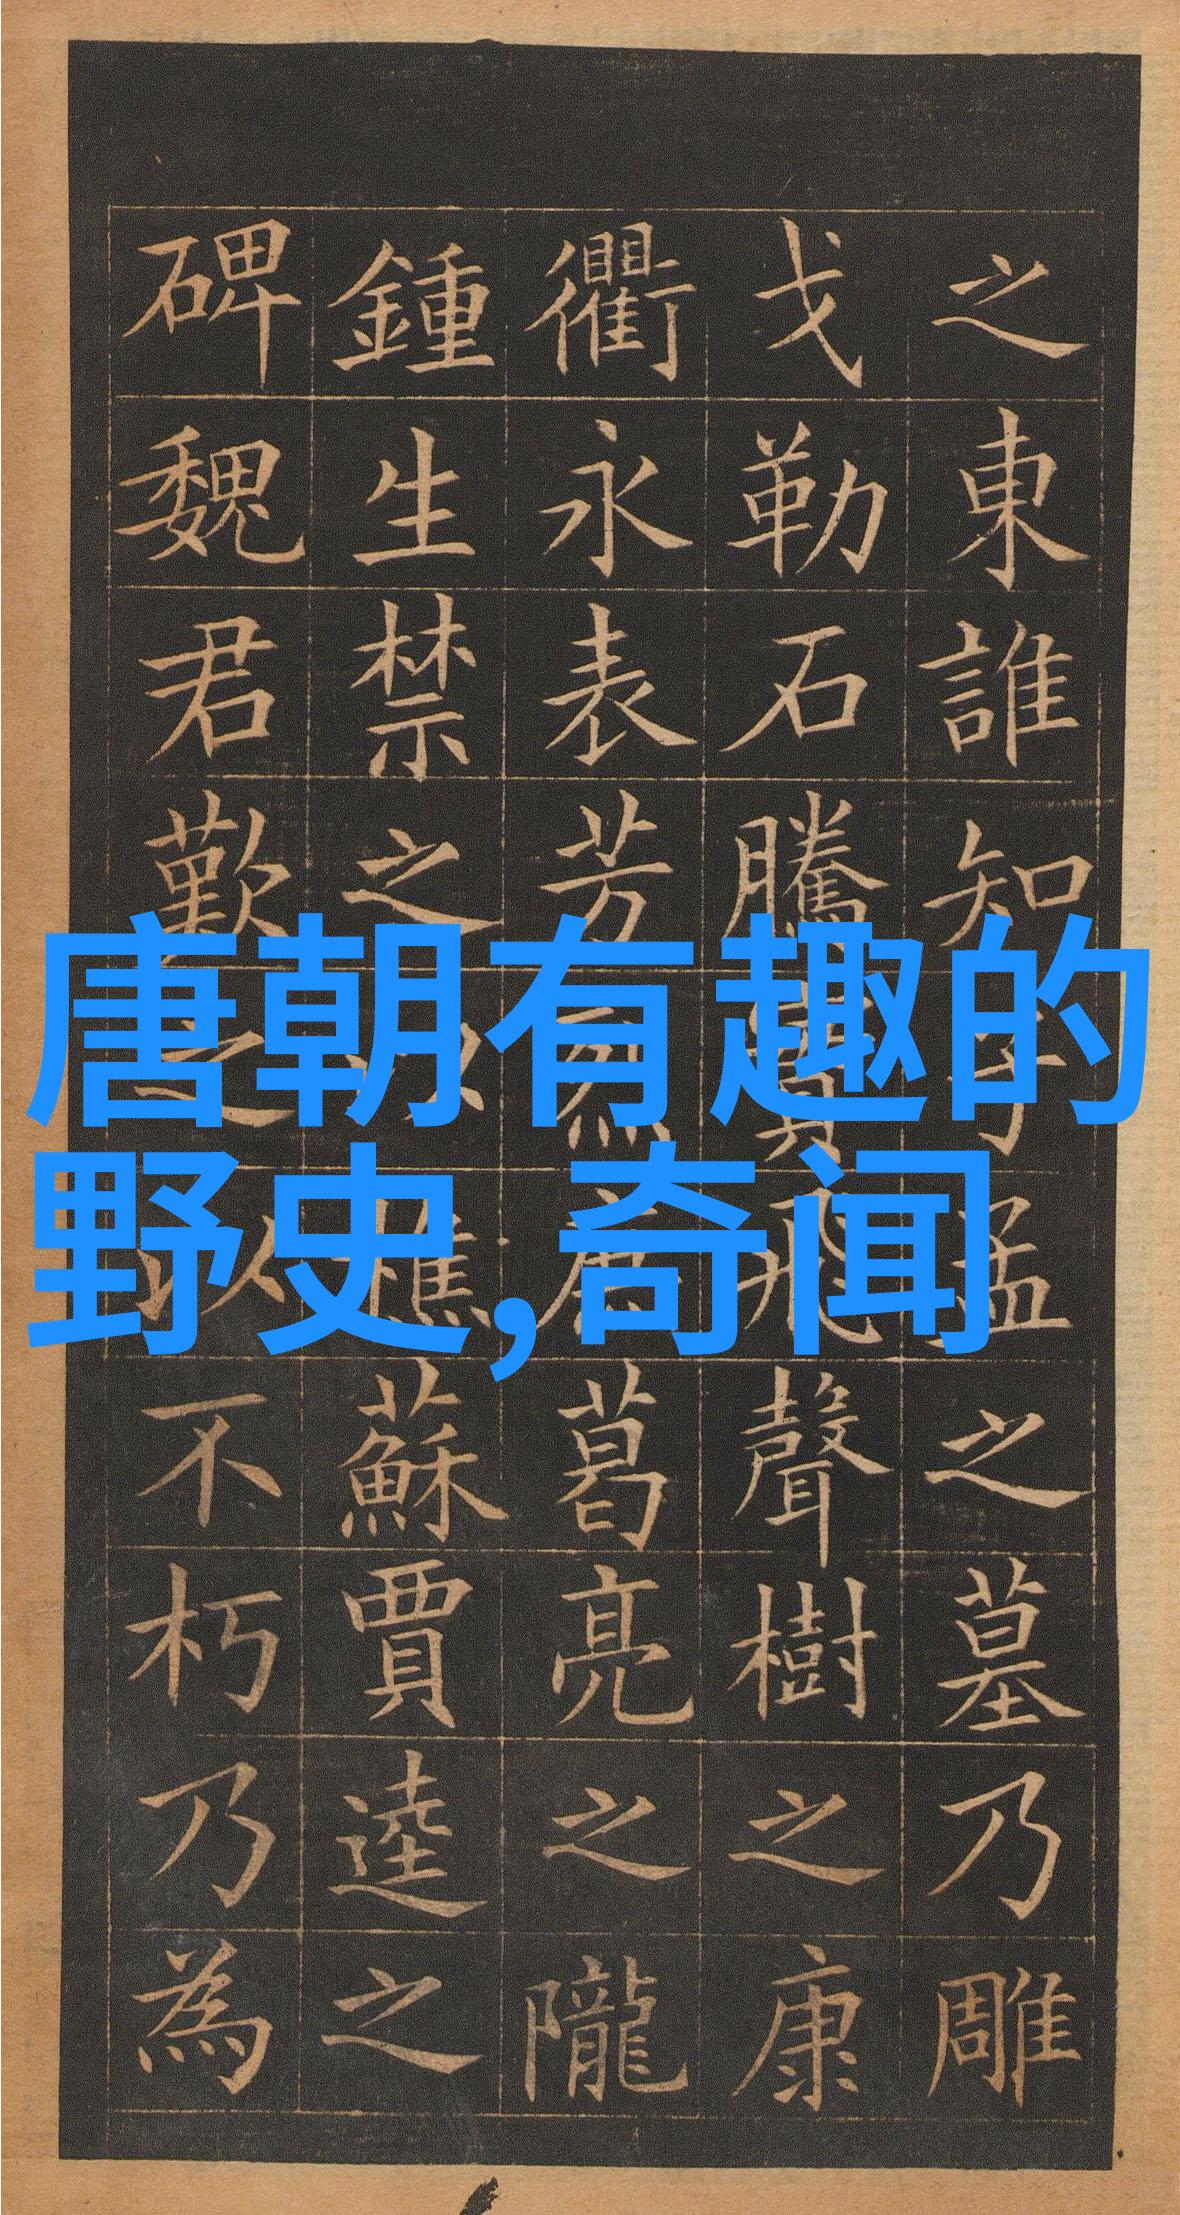 唐朝有趣的
野史,奇闻
之東誰知子孟之墓乃雕
戈勒石騰實飛聲樹之康
衢永表芳烈庶葛亮之隴
鍾生禁之以樵蘇賈逵之
碑魏君歎之以不朽乃為